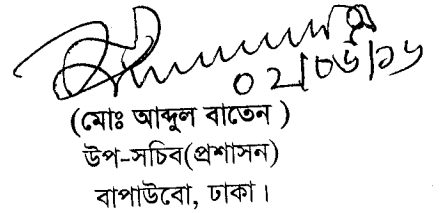 ০২/০৬/১৬
(মোঃ আব্দুল বাতেন )
উপ-সচিব(প্রশাসন)
বাপাউবো, ঢাকা।